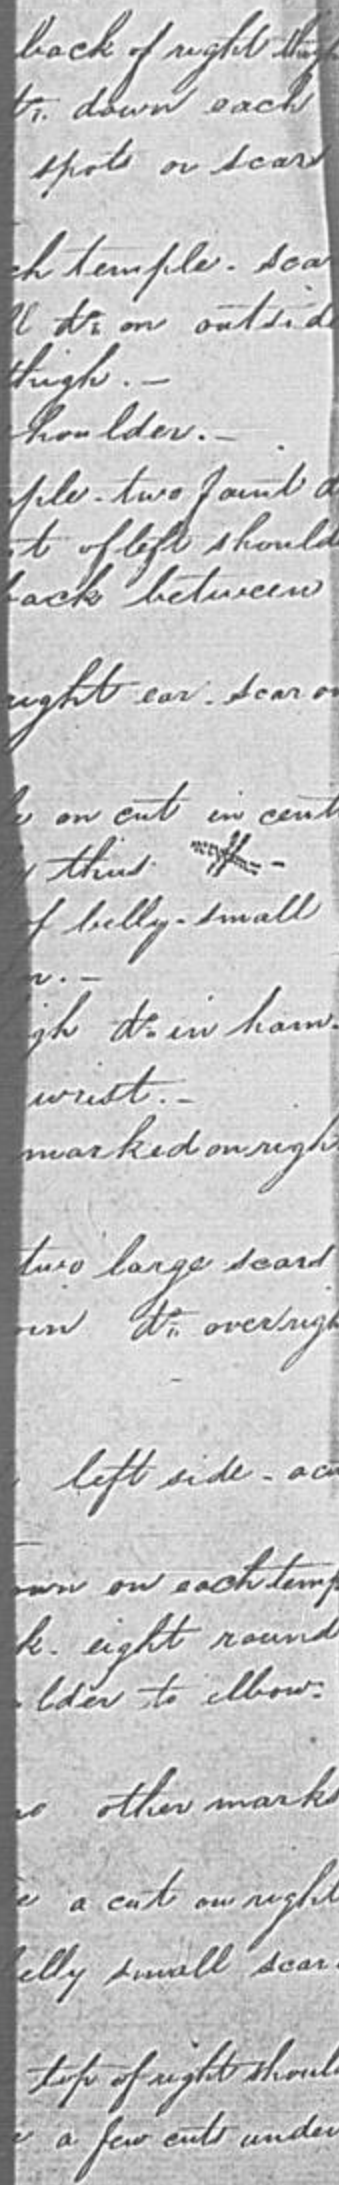 back of right thigh
do. down each
spots or scars
ch temple - sca
do. on outside
thigh. -
houlder. -
ple - two faint d
t of left should
back between
right ear - scar on
on cut in cent
thus
f belly - small
r. -
gh do. in ham -
wrist. -
marked on righ
two large scars
wn do. over righ
left side - acu
own on each temp
k - eight round
lder to elbow -
no other marks
e a cut on right
elly small scar
top of right should
e a few cuts under